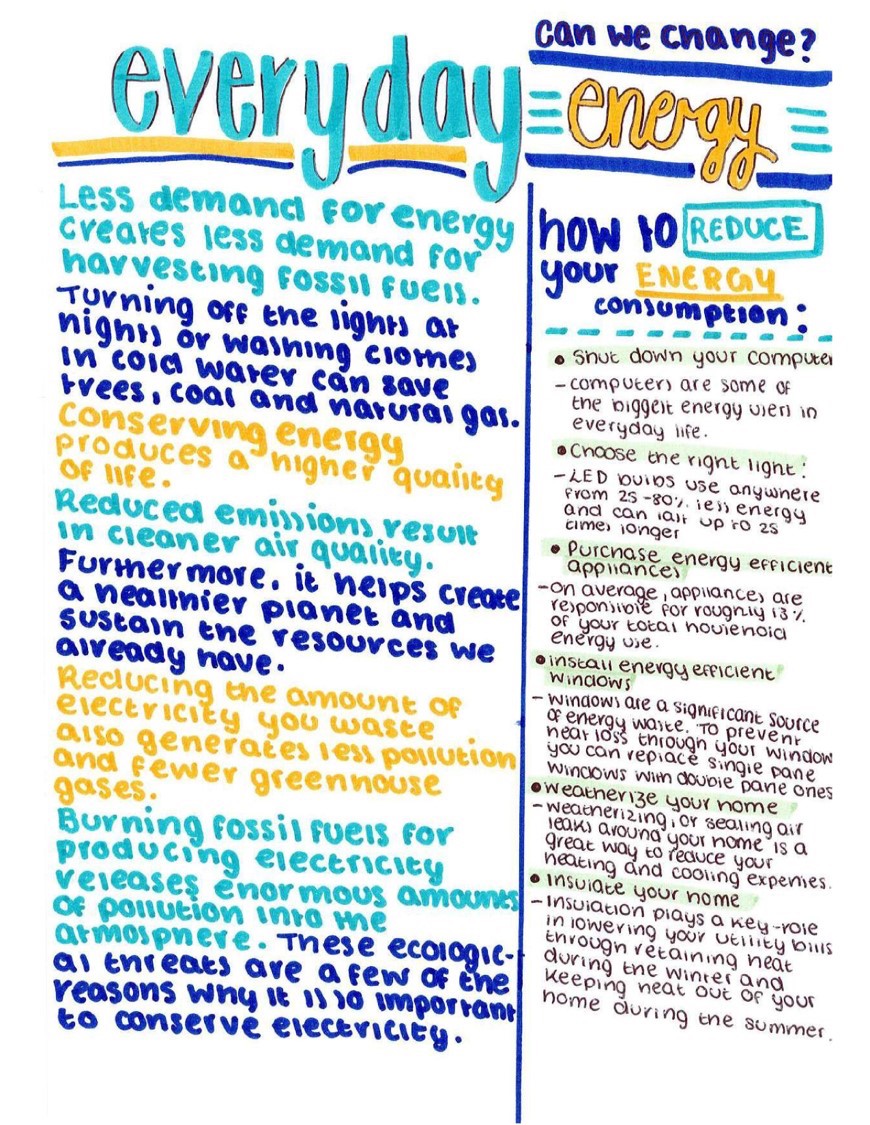 everyday
Less demand for energy
creates less demand for
harvesting fossil fuels.
Turning off the lights at
nights or washing clothes
in cold water can save
trees, coal and natural gas.
Conserving energy
produces a higher quality
of life.
Reduced emissions result
in cleaner air quality.
Furthermore, it helps create
a healthier planet and
sustain the resources we
already have.
Reducing the amount of
electricity you waste
also generates less pollution
and fewer greenhouse
gases.
Burning fossil fuels for
producing electricity
releases enormous amounts
of pollution into the
atmosphere. These ecologic-
al threats are a few of the
reasons why it is so important
to conserve electricity.
can we change?
energy
how to REDUCE
your ENERGY
consumption:
• Shut down your computer
- computers are some of
the biggest energy users in
everyday life.
• Choose the right light:
- LED bulbs use anywhere
from 25-80% less energy
and can last up to 25
times longer
• Purchase energy efficient
appliances
- On average, appliances are
responsible for roughly 13%
of your total household
energy use.
• install energy efficient
windows
- windows are a significant source
of energy waste. To prevent
heat loss through your window
you can replace single pane
windows with double pane ones
• weatherize your home
- weatherizing, or sealing air
leaks around your home is a
great way to reduce your
heating and cooling expenses.
• Insulate your home
- Insulation plays a key-role
in lowering your utility bills
through retaining heat
during the winter and
keeping heat out of your
home during the summer.